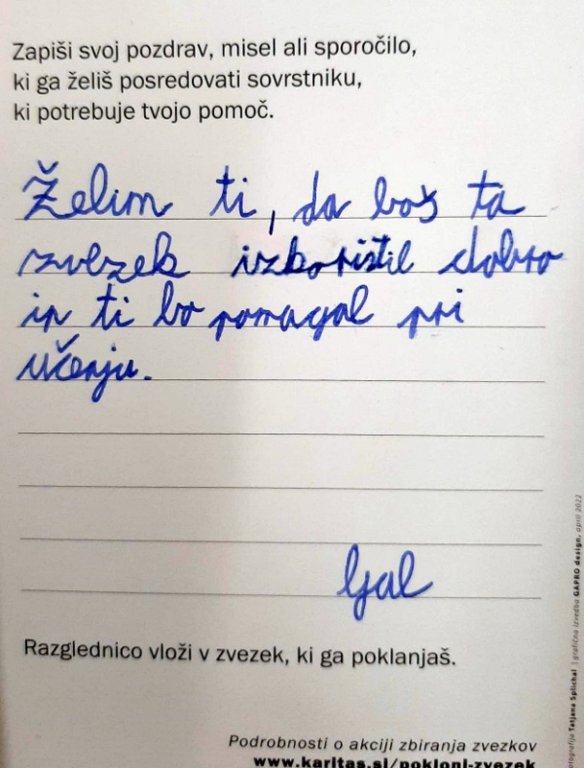 Zapiši svoj pozdrav, misel ali sporočilo,
ki ga želiš posredovati sovrstniku,
ki potrebuje tvojo pomoč.
Želim ti, da boš ta
zvezek izkoristil dobro
in ti bo pomagal pri
učenju.
Gal
Razglednico vloži v zvezek, ki ga poklanjaš.
Podrobnosti o akciji zbiranja zvezkov
www.karitas.si/pokloni-zvezek
fotografija Tatjana Splichal | grafična izvedba GAPRO design, april 2022